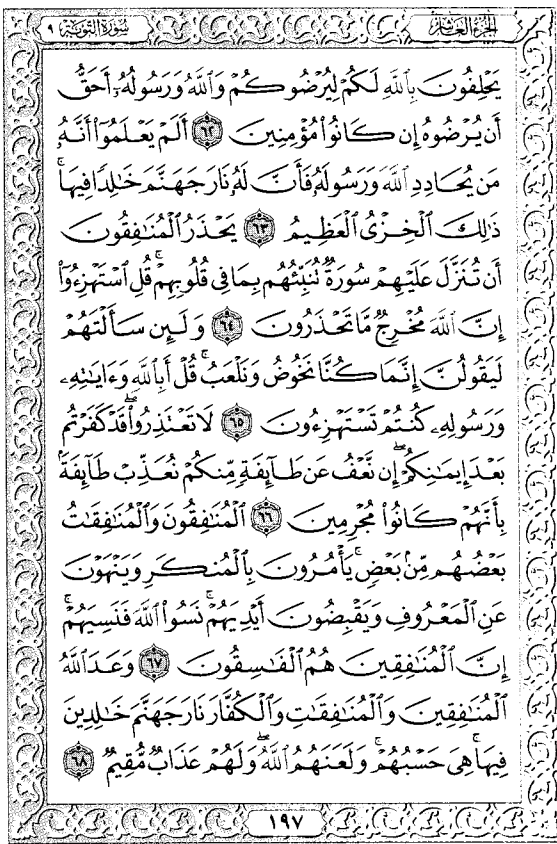 الجزء العاشر
سورة التوبة ٩
يَحْلِفُونَ بِٱللَّهِ لَكُمْ لِيُرْضُوكُمْ وَٱللَّهُ وَرَسُولُهُۥٓ أَحَقُّ
أَن يُرْضُوهُ إِن كَانُوا۟ مُؤْمِنِينَ ٦٢ أَلَمْ يَعْلَمُوٓا۟ أَنَّهُۥ
مَن يُحَادِدِ ٱللَّهَ وَرَسُولَهُۥ فَأَنَّ لَهُۥ نَارَ جَهَنَّمَ خَٰلِدًا فِيهَا ۚ
ذَٰلِكَ ٱلْخِزْىُ ٱلْعَظِيمُ ٦٣ يَحْذَرُ ٱلْمُنَٰفِقُونَ
أَن تُنَزَّلَ عَلَيْهِمْ سُورَةٌ تُنَبِّئُهُم بِمَا فِى قُلُوبِهِمْ ۚ قُلِ ٱسْتَهْزِءُوٓا۟
إِنَّ ٱللَّهَ مُخْرِجٌ مَّا تَحْذَرُونَ ٦٤ وَلَئِن سَأَلْتَهُمْ
لَيَقُولُنَّ إِنَّمَا كُنَّا نَخُوضُ وَنَلْعَبُ ۚ قُلْ أَبِٱللَّهِ وَءَايَٰتِهِۦ
وَرَسُولِهِۦ كُنتُمْ تَسْتَهْزِءُونَ ٦٥ لَا تَعْتَذِرُوا۟ قَدْ كَفَرْتُم
بَعْدَ إِيمَٰنِكُمْ ۚ إِن نَّعْفُ عَن طَآئِفَةٍ مِّنكُمْ نُعَذِّبْ طَآئِفَةًۢ
بِأَنَّهُمْ كَانُوا۟ مُجْرِمِينَ ٦٦ ٱلْمُنَٰفِقُونَ وَٱلْمُنَٰفِقَٰتُ
بَعْضُهُم مِّنۢ بَعْضٍ ۚ يَأْمُرُونَ بِٱلْمُنكَرِ وَيَنْهَوْنَ
عَنِ ٱلْمَعْرُوفِ وَيَقْبِضُونَ أَيْدِيَهُمْ ۚ نَسُوا۟ ٱللَّهَ فَنَسِيَهُمْ ۗ
إِنَّ ٱلْمُنَٰفِقِينَ هُمُ ٱلْفَٰسِقُونَ ٦٧ وَعَدَ ٱللَّهُ
ٱلْمُنَٰفِقِينَ وَٱلْمُنَٰفِقَٰتِ وَٱلْكُفَّارَ نَارَ جَهَنَّمَ خَٰلِدِينَ
فِيهَا ۚ هِىَ حَسْبُهُمْ ۚ وَلَعَنَهُمُ ٱللَّهُ ۖ وَلَهُمْ عَذَابٌ مُّقِيمٌ ٦٨
١٩٧